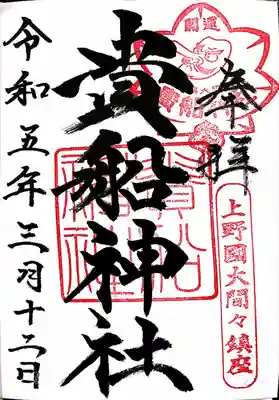 奉拝
開運
上野國大間々鎮座
貴船神社
令和五年三月十二日